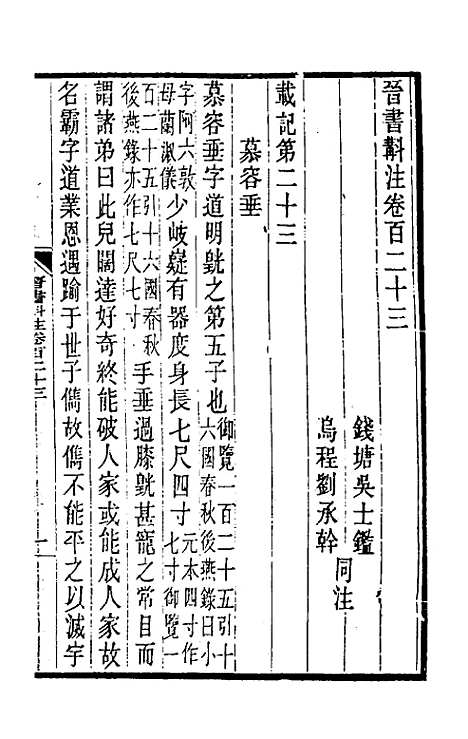 晉書斠注卷百二十三
錢塘吳士鑑
烏程劉承幹
同注
載記第二十三
慕容垂
慕容垂字道明皝之第五子也御覽一百二十五引十六國春秋後燕錄曰小
字阿六敦母蘭淑儀少岐嶷有器度身長七尺四寸元本四寸作七寸御覽一
百二十五引十六國春秋後燕錄亦作七尺七寸手垂過膝皝甚寵之常目而
謂諸弟曰此兒闊達好奇終能破人家或能成人家故
名霸字道業恩遇踰于世子儁故儁不能平之以滅宇
晉書斠注卷百二十三
一